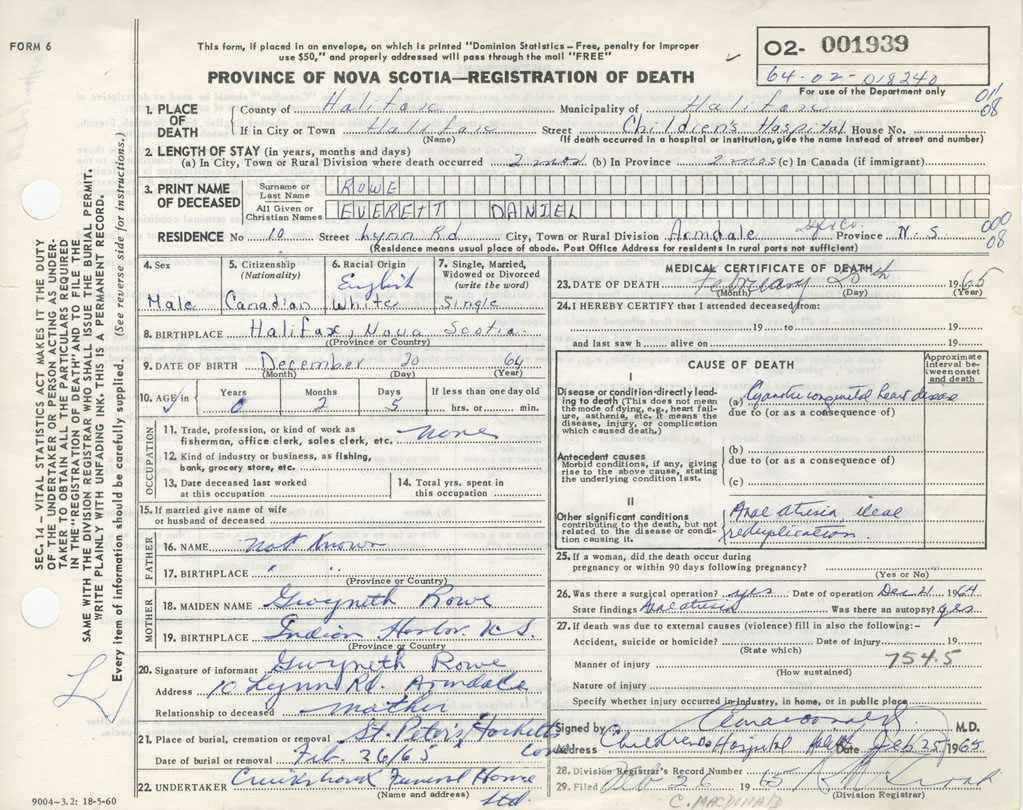 FORM 6
This form, if placed in an envelope, on which is printed "Dominion Statistics – Free, penalty for improper
use $50," and properly addressed will pass through the mail "FREE"
PROVINCE OF NOVA SCOTIA—REGISTRATION OF DEATH
O2- 001939
64-02-018240
For use of the Department only
SEC. 14 – VITAL STATISTICS ACT MAKES IT THE DUTY
OF THE UNDERTAKER OR PERSON ACTING AS UNDER-
TAKER TO OBTAIN ALL THE PARTICULARS REQUIRED
IN THE "REGISTRATION OF DEATH" AND TO FILE THE
SAME WITH THE DIVISION REGISTRAR WHO SHALL ISSUE THE BURIAL PERMIT.
WRITE PLAINLY WITH UNFADING INK. THIS IS A PERMANENT RECORD.
Every item of information should be carefully supplied. (See reverse side for instructions.)
1. PLACE OF DEATH
County of Halifax Municipality of Halifax 08
If in City or Town Halifax Street Children's Hospital House No.
(Name) (If death occurred in a hospital or institution, give the name instead of street and number)
2. LENGTH OF STAY (in years, months and days)
(a) In City, Town or Rural Division where death occurred 2 mos (b) In Province 2 mos (c) In Canada (if immigrant)
3. PRINT NAME OF DECEASED
Surname or Last Name ROWE
All Given or Christian Names EVERETT DANIEL
RESIDENCE No 10 Street Lynn Rd City, Town or Rural Division Armdale Province N.S. 08
(Residence means usual place of abode. Post Office Address for residents in rural parts not sufficient)
4. Sex
Male
5. Citizenship
(Nationality)
Canadian
6. Racial Origin
English
White
7. Single, Married,
Widowed or Divorced
(write the word)
Single
8. BIRTHPLACE Halifax, Nova Scotia
(Province or Country)
9. DATE OF BIRTH December 20 64
(Month) (Day) (Year)
10. AGE in Years 0 Months 2 Days 5 If less than one day old
hrs. or min.
OCCUPATION
11. Trade, profession, or kind of work as
fisherman, office clerk, sales clerk, etc. none
12. Kind of industry or business, as fishing,
bank, grocery store, etc.
13. Date deceased last worked
at this occupation
14. Total yrs. spent in
this occupation
15. If married give name of wife
or husband of deceased
FATHER
16. NAME Not Known
17. BIRTHPLACE " "
(Province or Country)
MOTHER
18. MAIDEN NAME Gwyneth Rowe
19. BIRTHPLACE Indian Harbor N.S.
(Province or Country)
20. Signature of informant Gwyneth Rowe
Address 10 Lynn Rd. Armdale
Relationship to deceased mother
21. Place of burial, cremation or removal St. Peter's Hacketts Cove
Date of burial or removal Feb. 26/65
22. UNDERTAKER Cruikshank Funeral Home Ltd
(Name and address)
9004-3.2: 18-5-60
MEDICAL CERTIFICATE OF DEATH
23. DATE OF DEATH February 25th 1965
(Month) (Day) (Year)
24. I HEREBY CERTIFY that I attended deceased from:
19 to 19
and last saw h alive on 19
CAUSE OF DEATH
Approximate
interval between
onset
and death
I
Disease or condition directly lead-
ing to death (This does not mean
the mode of dying, e.g., heart fail-
ure, asthenia, etc. It means the
disease, injury, or complication
which caused death.)
(a) Cyanotic congenital heart disease
due to (or as a consequence of)
Antecedent causes
Morbid conditions, if any, giving
rise to the above cause, stating
the underlying condition last.
(b)
due to (or as a consequence of)
(c)
II
Other significant conditions
contributing to the death, but not
related to the disease or condi-
tion causing it.
Anal atresia, ileal
reduplication.
25. If a woman, did the death occur during
pregnancy or within 90 days following pregnancy?
(Yes or No)
26. Was there a surgical operation? yes Date of operation Dec 21 1964
State findings Anal atresia Was there an autopsy? yes
27. If death was due to external causes (violence) fill in also the following:–
Accident, suicide or homicide? Date of Injury 19
(State which)
Manner of injury 754.5
(How sustained)
Nature of injury
Specify whether injury occurred in industry, in home, or in public place
Signed by M.D.
Address Children's Hospital Halifax Date Feb 25 1965
28. Division Registrar's Record Number
29. Filed Feb 26 1965
(Division Registrar)
C. MACDONALD